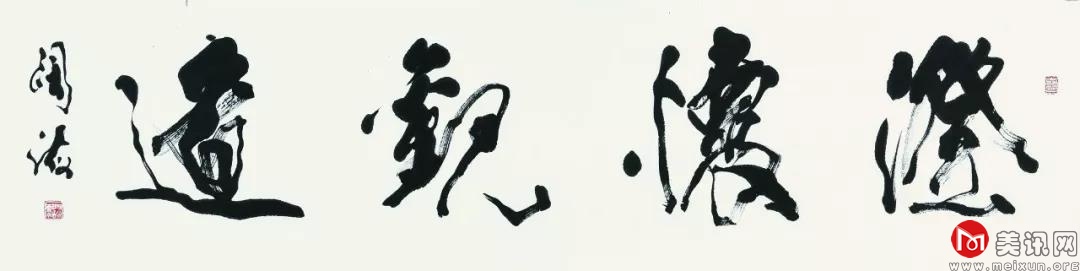 澄懷觀道
美讯网
www.meixun.org